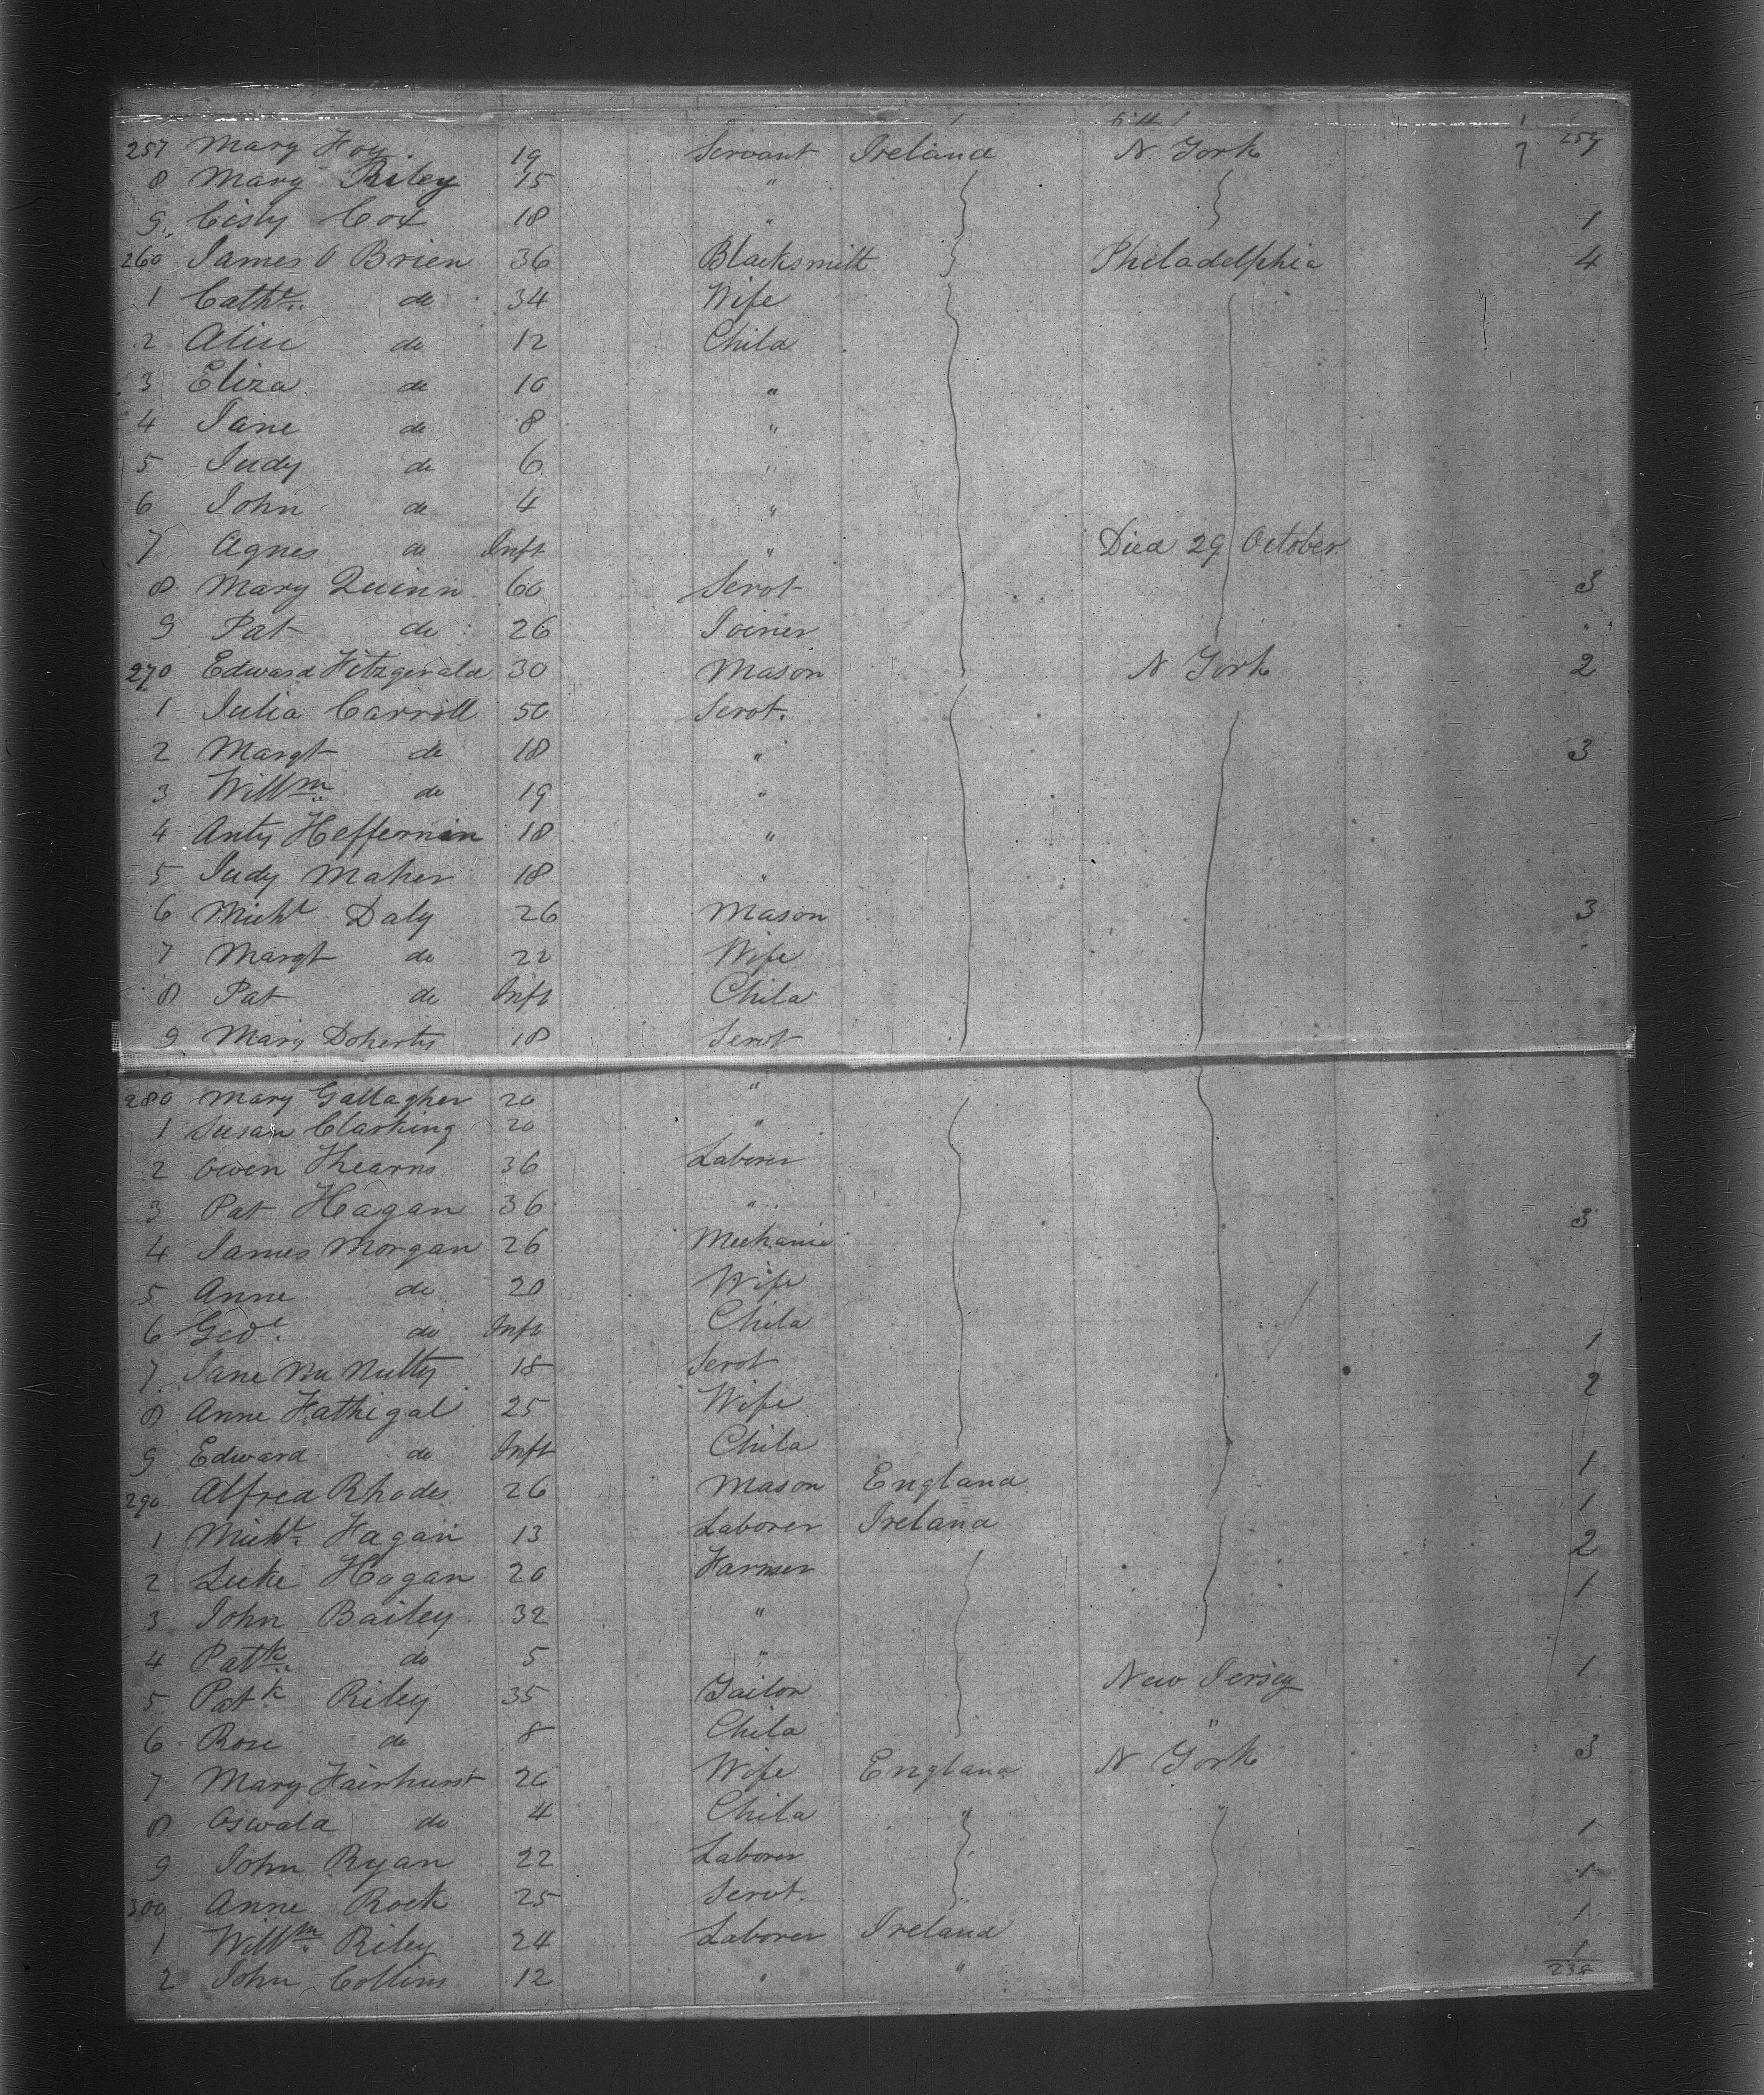 257 Mary Foy 19 Servant Ireland N. York 7 257
8 Mary Riley 15 "
9 Cisly Cox 18 " 1
260 James O Brien 36 Blacksmith Philadelphia 4
1 Cathe. do 34 Wife
2 Alice do 12 Child
3 Eliza do 10 "
4 Jane do 8 "
5 Judy do 6 "
6 John do 4 "
7 Agnes do Inft " Died 29 October
8 Mary Quinn 60 Servt 3
9 Pat do 26 Joiner "
270 Edward Fitzgerald 30 Mason N York 2
1 Julia Carroll 50 Servt.
2 Margt do 18 " 3
3 Willm do 19 "
4 Anty Heffernin 18 "
5 Judy Maher 18 "
6 Michl Daly 26 Mason 3
7 Margt do 22 Wife
8 Pat do Inft Child
9 Mary Doherty 18 Servt
280 Mary Gallagher 20 "
1 Susan Clarking 20 "
2 Owen Khearns 36 Laborer
3 Pat Hagan 36 " 3
4 James Morgan 26 Mechanic
5 Anne do 20 Wife
6 do Inft Child 1
7 Jane Mc Nulty 18 Servt 2
8 Anne Fathigal 25 Wife
9 Edward do Inft Child 1
290 Alfred Rhodes 26 Mason England 1
1 Michl. Fagan 13 Laborer Ireland 2
2 Luke Hogan 20 Farmer 1
3 John Bailey 32 "
4 Patk. do 5 " 1
5 Patk Riley 35 Tailor New Jersey
6 Rose do 8 Child " 3
7 Mary Fairhurst 26 Wife England N York
8 Oswald do 4 Child " " 1
9 John Ryan 22 Laborer 1
300 Anne Rock 25 Servt. 1
1 Willm. Riley 24 Laborer Ireland 1
2 John Collins 12 " " 238